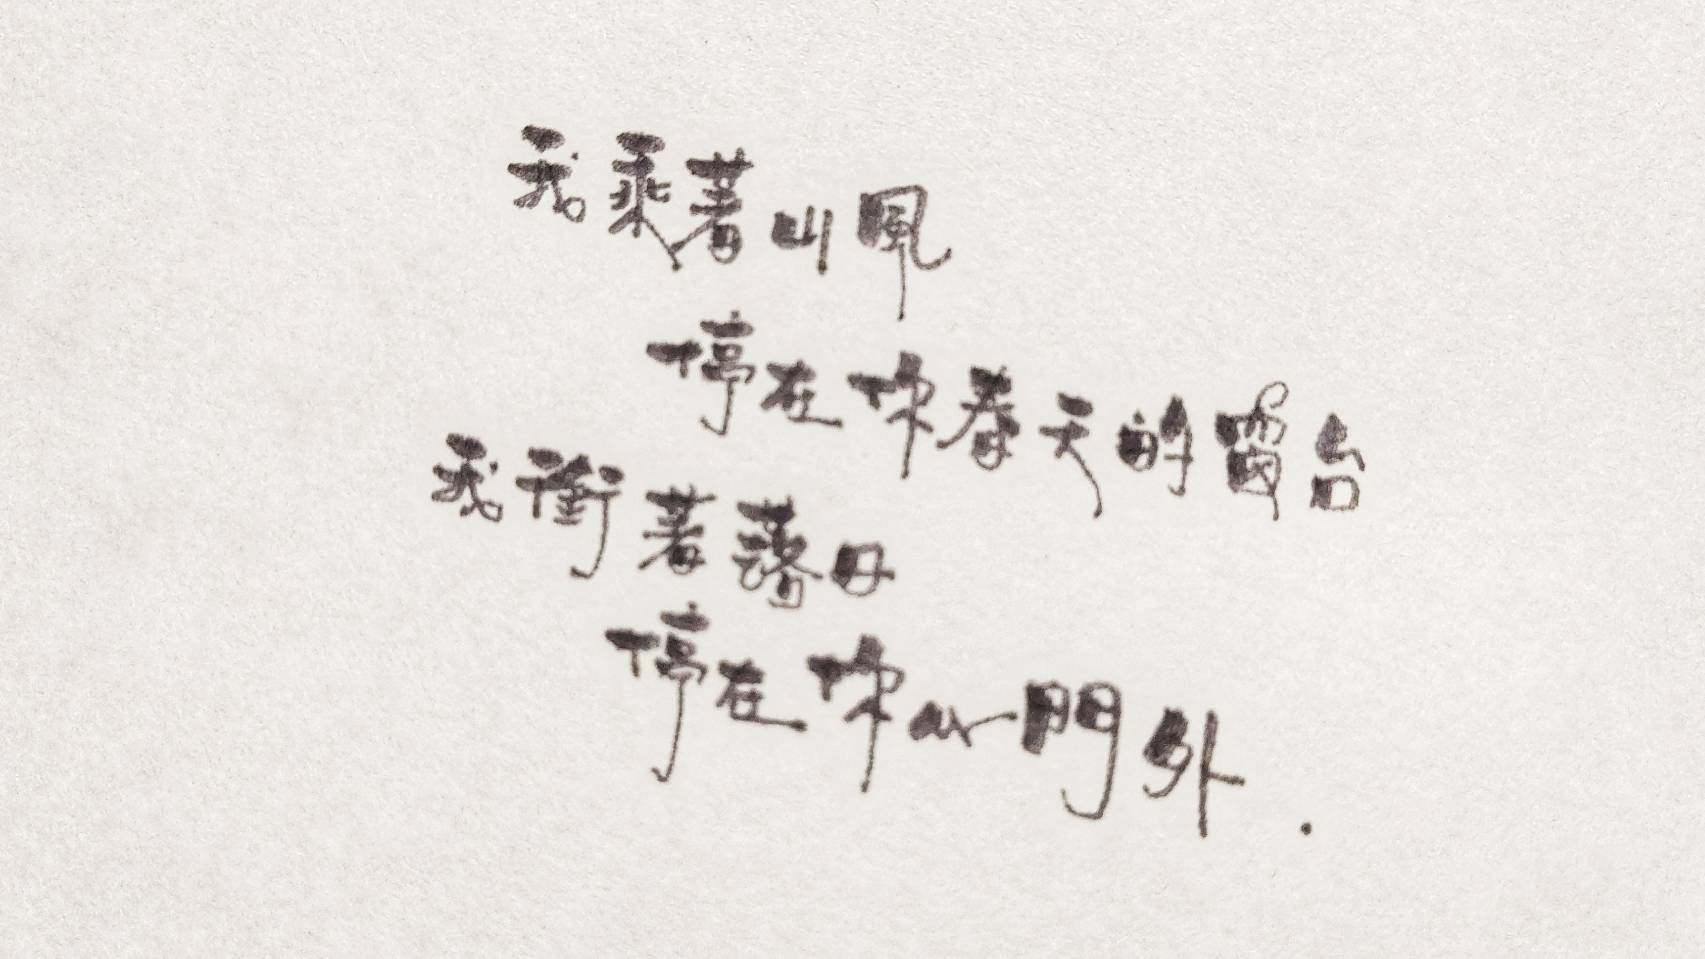 我乘著山風
停在你春天的窗台
我銜著落日
停在你心門外.